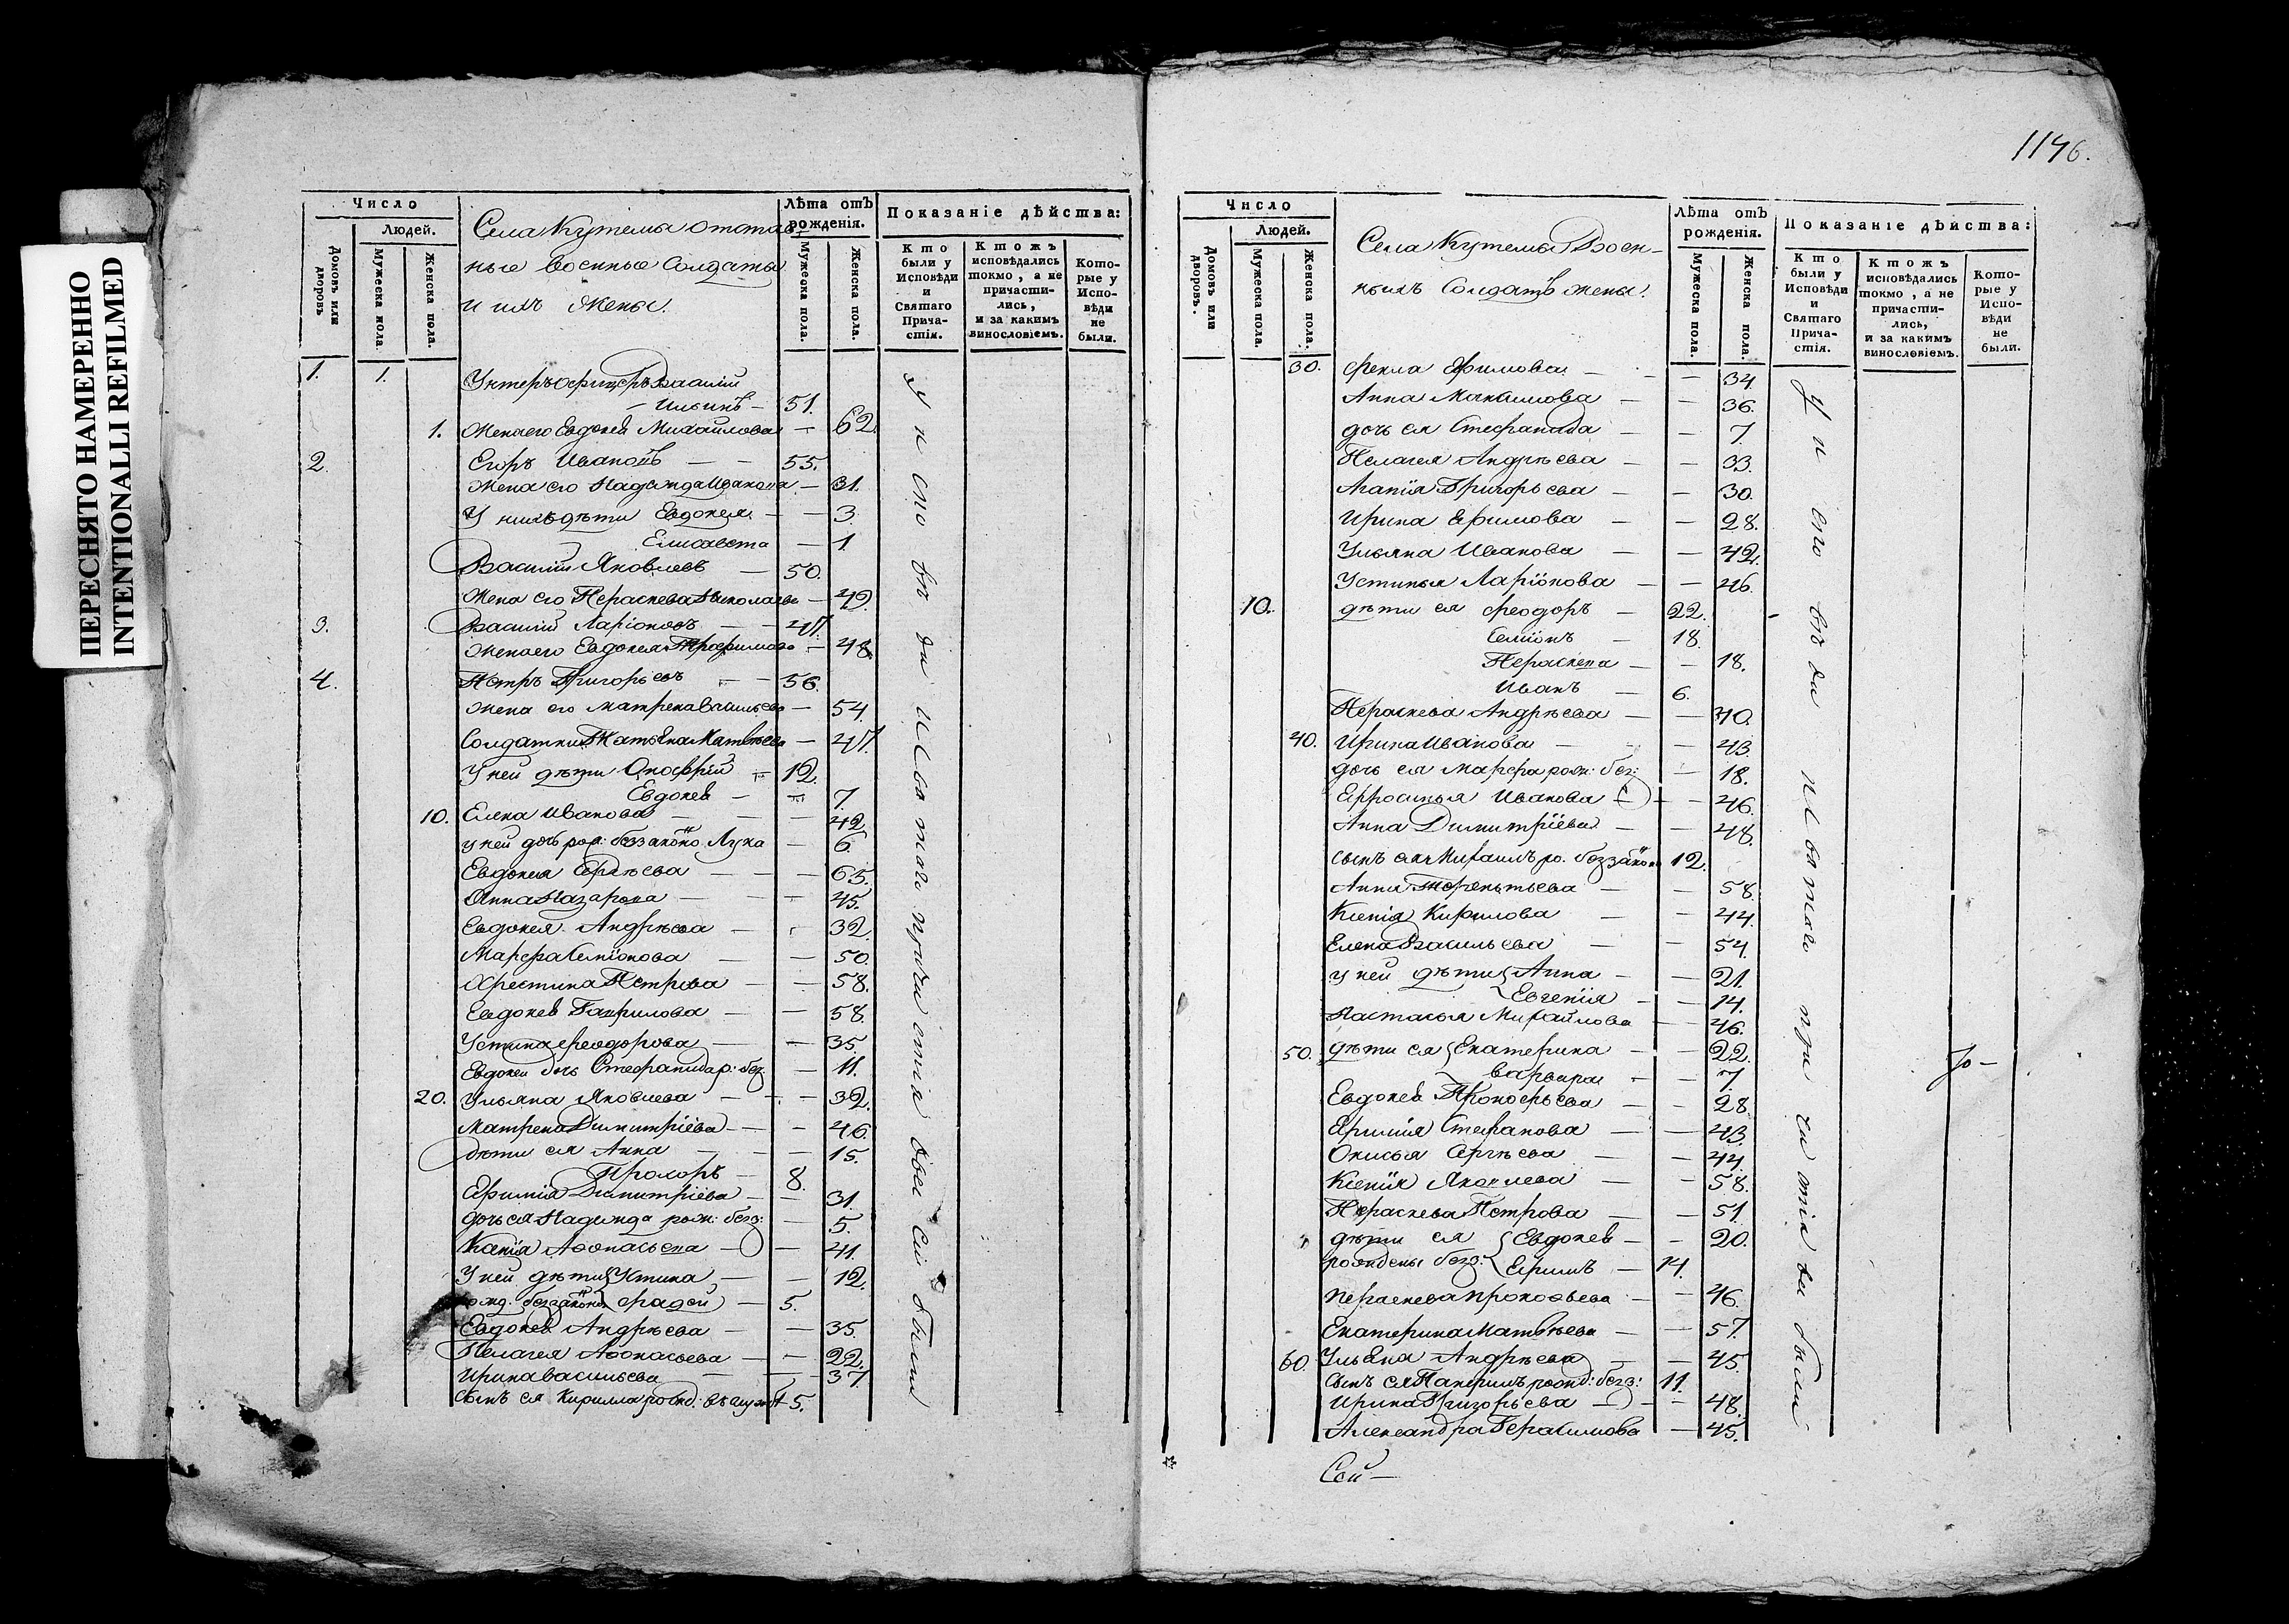 ПЕРЕСНЯТО НАМЕРЕННО
INTENTIONALLI REFILMED
Число
Людей.
Домовъ или дворовъ.
Мужеска пола.
Женска пола.
Села Кутемы отстав-
ные военные Солдаты
и ихъ жены.
Лѣта отъ рожденія.
Мужеска пола.
Женска пола.
Показаніе дѣйства:
Кто были у Исповѣди и Святаго Прича-стія.
Ктожъ исповѣдались токмо, а не причасти-лись, и за какимъ винословіемъ.
Кото-рые у Испо-вѣди не были.
1. 1. Унтеръ офицеръ Василій
Ильинъ — 51.
1. Жена его Евдокея Михайлова — 62.
2. Егоръ Ивановъ — — 55.
Жена его Надежда Иванова — 31.
У нихъ дѣти Евдокея — — 3.
Елисавета — 1.
Василій Яковлевъ — 50.
Жена его Пераскева Николаева — 49.
3. Василій Ларіоновъ — — 47.
Жена его Евдокея Трофимова — 48.
4. Петръ Григорьевъ — — 56.
Жена его Матрена Васильева — 54.
Солдатки Татьяна Матвѣева — 47.
У ней дѣти — 12.
Евдокея — — 7.
10. Елена Иванова — — — 42.
у ней дочь рож: беззаконо — 6.
Евдокея Сергѣева — — — 65.
Анна Назарова — — 45.
Евдокея Андрѣева — — 32.
Марфа Семіонова — — 50.
Христина Петрова — — 58.
Евдокея Гаврилова — — 58.
Устина Ѳеодорова — — 35.
Евдокеи дочь Стефанида р: без: — 11.
20. Ульяна Яковлева — — — 32.
Матрена Димитріева — — 46.
дѣти ея Анна — — — 15.
Прохоръ — 8.
Ефимія Димитріева — — 31.
дочь ея Надежда рож: безз: — 5.
Ксенія Аѳонасьева — — 41.
У ней дѣти Устина — — 12.
рожд. беззаконо Фадей — 5.
Евдокея Андрѣева — — 35.
Пелагея Аѳонасьева — — 22.
Ирина Васильева — — — 37.
Сынъ ея Кирилла рожд: 5.
У исповѣди и святаго причастія всѣ сіи были
1176.
Число
Людей.
Домовъ или дворовъ.
Мужеска пола.
Женска пола.
Села Кутемы Воен-
ныхъ Солдатъ жены.
Лѣта отъ рожденія.
Мужеска пола.
Женска пола.
Показаніе дѣйства:
Кто были у Исповѣди и Святаго Прича-стія.
Ктожъ исповѣдались токмо, а не причасти-лись, и за какимъ винословіемъ.
Кото-рые у Испо-вѣди не были.
30. Ѳекла Ефимова — — — 34.
Анна Максимова — — 36.
дочь ея Стефанида — — 7.
Пелагея Андрѣева — — 33.
Агапія Григорьева — — 30.
Ирина Ефимова — — 28.
Ульяна Иванова — — 42.
Устинья Ларіонова — — 46.
10. дѣти ея Ѳеодоръ — 22.
Семіонъ — 18.
Пераскева — — 18.
Иванъ — 6.
Пераскева Андрѣева — — 40.
40. Ирина Иванова — — — 43.
дочь ея Марфа рож: без: — 18.
Ефросинья Иванова — — 46.
Анна Димитріева — — 48.
сынъ ея Михаилъ ро. беззаконо 12.
Анна Терентьева — — 58.
Ксенія Кирилова — — 44.
Елена Васильева — — 54.
у ней дѣти Анна — — 21.
Евгенія — — 14.
Настасья Михайлова — — 46.
50. дѣти ея Екатерина — — 22.
Варвара — — 7.
Евдокея Прокофьева — — 28.
Ефимія Стефанова — — 43.
Оксинья Сергѣева — — 44.
Ксенія Яковлева — — 58.
Пераскева Петрова — — 51.
дѣти ея Евдокея — — 20.
рождены безз: Ефимъ — 14.
Пераскева Прокофьева — — 46.
Екатерина Матвѣева — — 57.
60. Ульяна Андрѣева — — 45.
Сынъ ея рожд: безз: 11.
Ирина Григорьева — — 48.
Александра Герасимова — 45.
Сей —